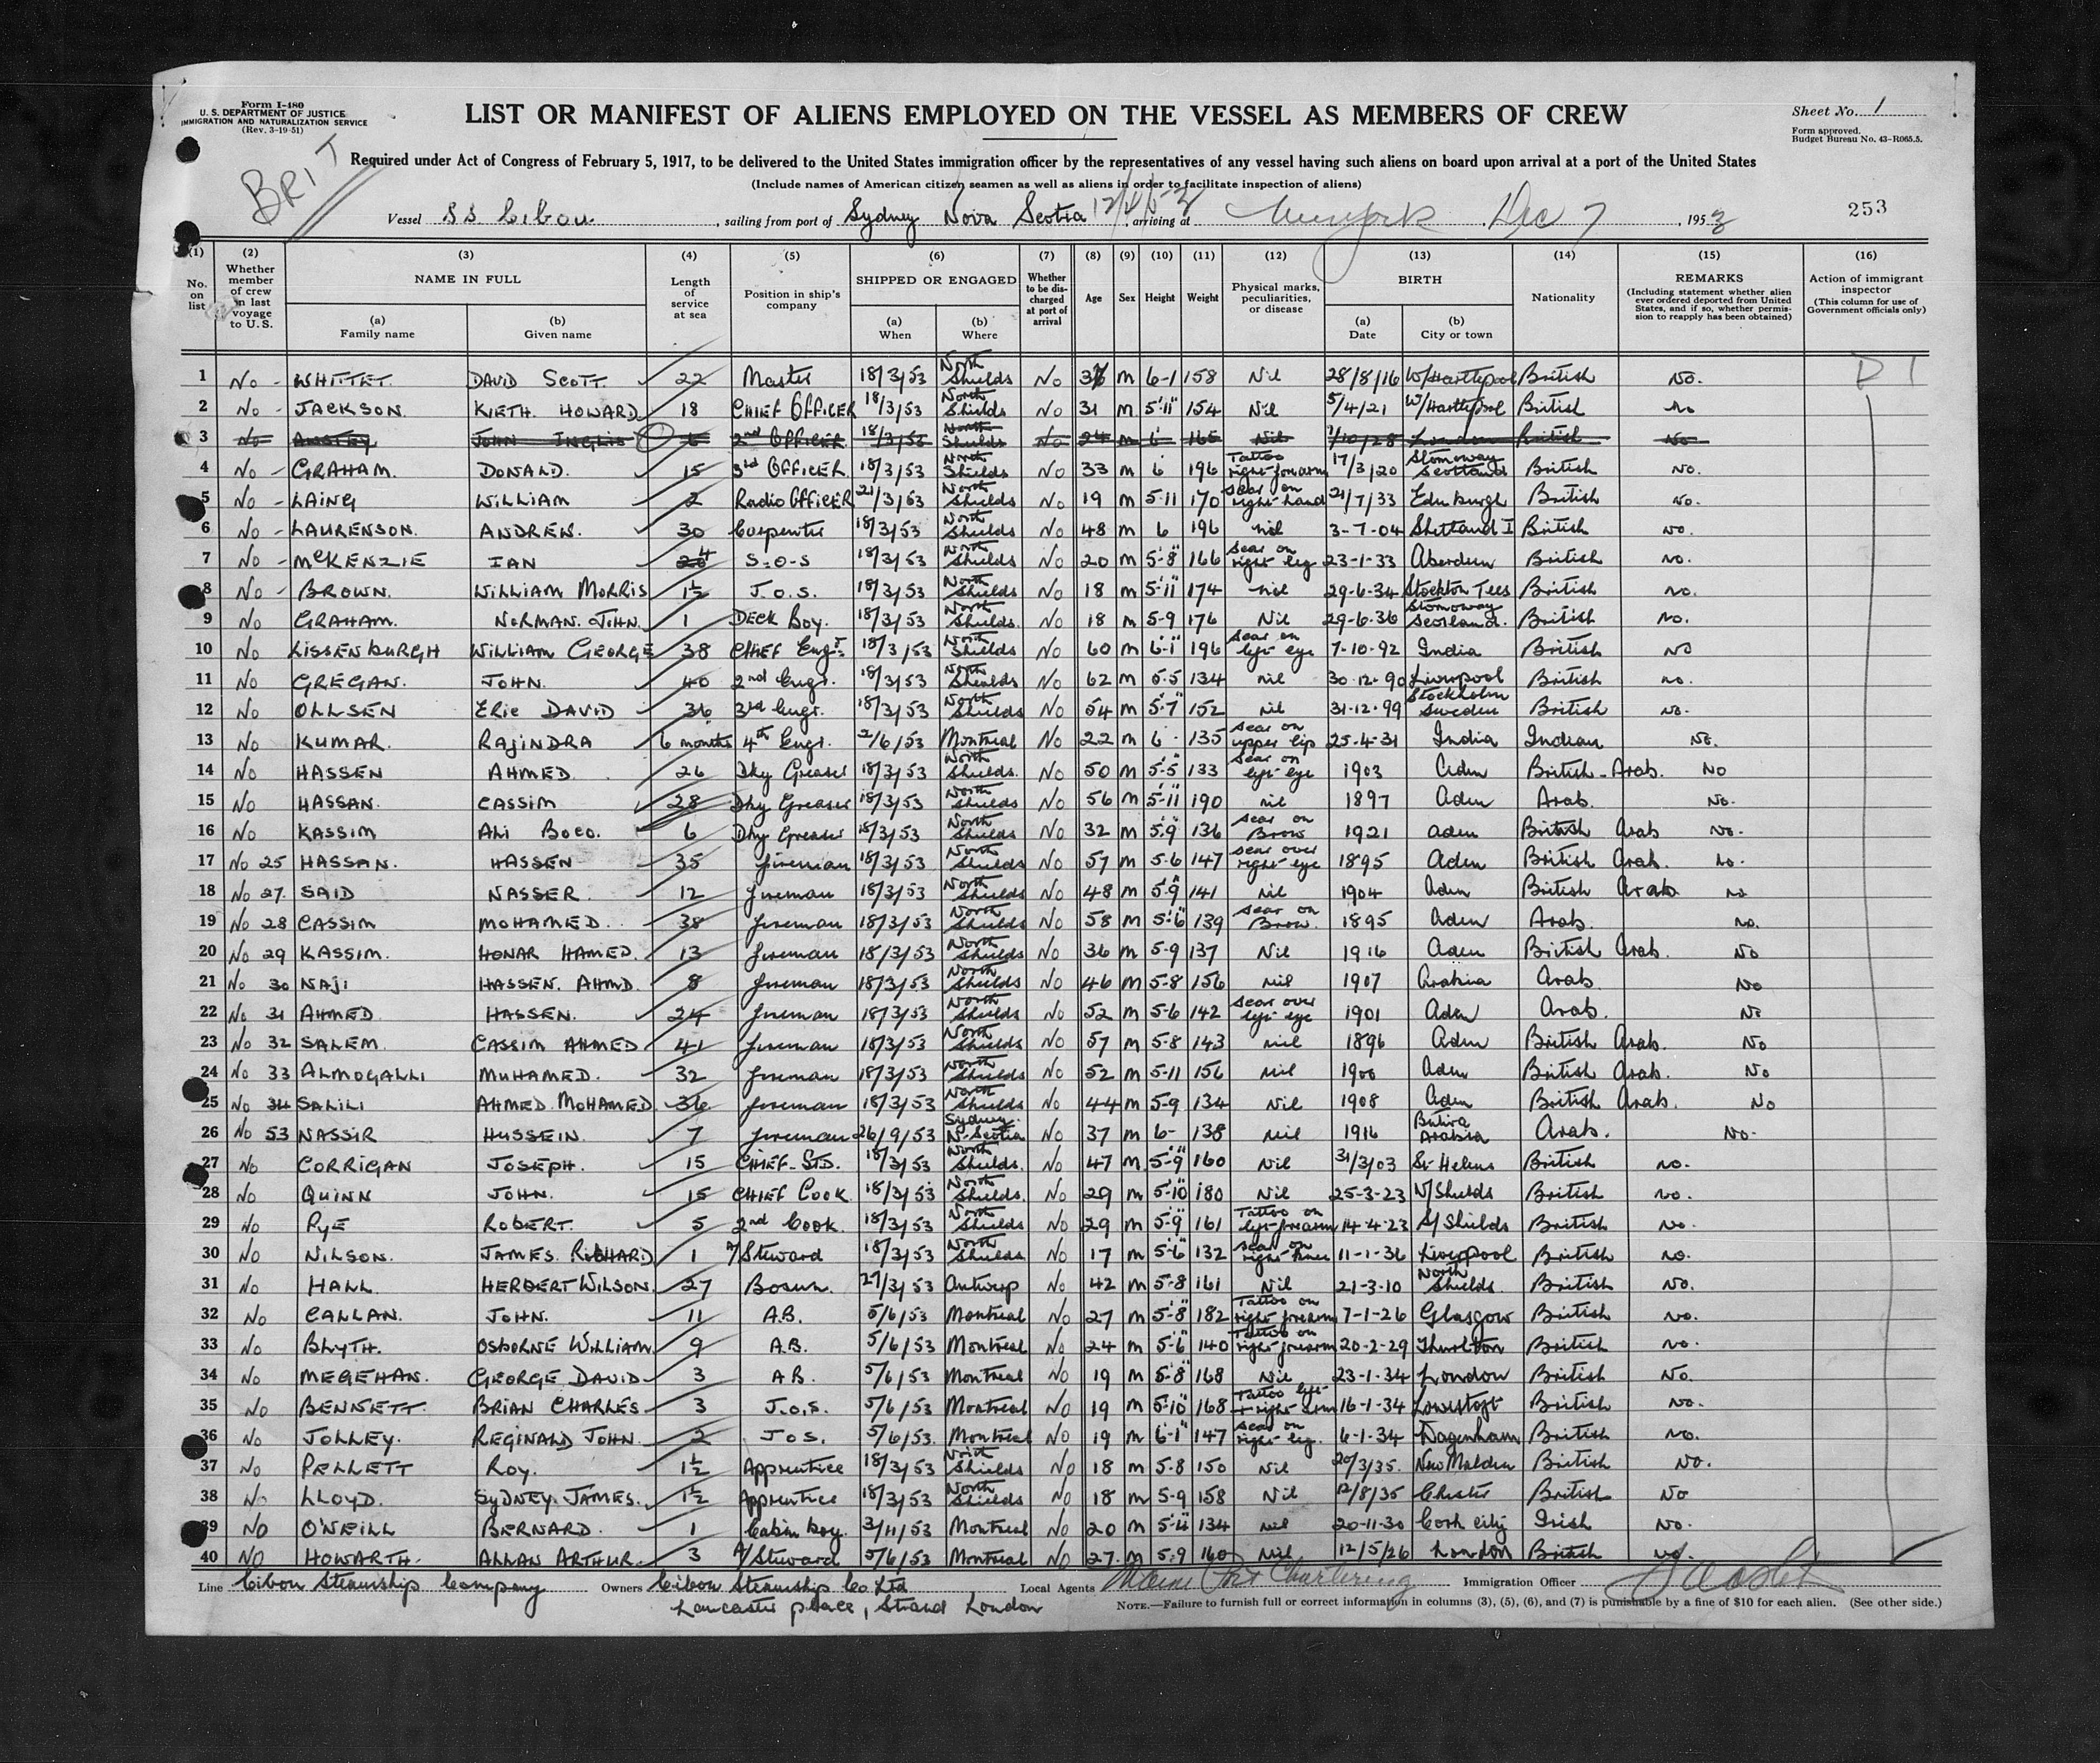 Form I-480
U. S. DEPARTMENT OF JUSTICE
IMMIGRATION AND NATURALIZATION SERVICE
(Rev. 3-19-51)
LIST OR MANIFEST OF ALIENS EMPLOYED ON THE VESSEL AS MEMBERS OF CREW
Sheet No. 1
Form approved.
Budget Bureau No. 43-R065.5.
BRIT
Required under Act of Congress of February 5, 1917, to be delivered to the United States immigration officer by the representatives of any vessel having such aliens on board upon arrival at a port of the United States
(Include names of American citizen seamen as well as aliens in order to facilitate inspection of aliens)
Vessel SS Cibou, sailing from port of Sydney Nova Scotia, arriving at New York Dec 7, 1953
253
(1) No. on list
(2) Whether member of crew on last voyage to U.S.
(3) NAME IN FULL (a) Family name (b) Given name
(4) Length of service at sea
(5) Position in ship's company
(6) SHIPPED OR ENGAGED (a) When (b) Where
(7) Whether to be discharged at port of arrival
(8) Age
(9) Sex
(10) Height
(11) Weight
(12) Physical marks, peculiarities, or disease
(13) BIRTH (a) Date (b) City or town
(14) Nationality
(15) REMARKS (Including statement whether alien ever ordered deported from United States, and if so, whether permission to reapply has been obtained)
(16) Action of immigrant inspector (This column for use of Government officials only)
1 No - WHITTET. DAVID SCOTT. 22 Master 18/3/53 North Shields No M 6-1 158 Nil 28/8/16 W/Hartlepool British No.
2 No - JACKSON. KIETH HOWARD 18 CHIEF OFFICER 18/3/53 North Shields No 31 M 5'11" 154 Nil 5/4/21 W/Hartlepool British No
3 No ANSTEY JOHN INGLIS 6 2nd OFFICER 18/3/53 North Shields No 24 M 6 165 Nil 1/10/28 London British No
4 No - GRAHAM. DONALD. 15 3rd OFFICER 18/3/53 North Shields No 33 M 6 196 Tattoo right forearm 17/3/20 Stornoway Scotland British No.
5 No - LAING WILLIAM 2 Radio OFFICER 21/3/53 North Shields No 19 M 5-11 170 Scar on right hand 21/7/33 Edinburgh British No.
6 No - LAURENSON. ANDREW. 30 Carpenter 18/3/53 North Shields No 48 M 6 196 nil 3-7-04 Shetland I British No.
7 No - McKENZIE IAN 4 S.O.S 18/3/53 North Shields No 20 M 5'-8" 166 Scar on right leg 23-1-33 Aberdeen British No.
8 No - BROWN. WILLIAM MORRIS 1½ J.O.S. 18/3/53 North Shields No 18 M 5'-11" 174 nil 29-6-34 Stockton Tees British No.
9 No GRAHAM. NORMAN. JOHN. 1 DECK Boy. 18/3/53 North Shields. No 18 M 5-9 176 Nil 29-6-36 Stornoway Scotland. British No.
10 No LISSENBURGH WILLIAM GEORGE 38 CHIEF Engr. 18/3/53 North Shields No 60 M 6'-1" 196 Scar on left eye 7-10-92 India British No
11 No GREGAN. JOHN. 40 2nd Engr. 18/3/53 North Shields No 62 M 5-5 134 nil 30-12-90 Liverpool British No.
12 No OLLSEN ERIC DAVID 36 3rd Engr. 18/3/53 North Shields No 54 M 5'-7" 152 nil 31-12-99 Stockholm Sweden British No.
13 No KUMAR. RAJINDRA 6 months 4th Engr. 2/6/53 Montreal No 22 M 6 135 Scar on upper lip 25-4-31 India Indian No.
14 No HASSEN AHMED. 26 Dky Greaser 18/3/53 North Shields. No 50 M 5'-5" 133 Scar on left eye 1903 Aden British - Arab. No
15 No HASSAN. CASSIM 28 Dky Greaser 18/3/53 North Shields No 56 M 5'-11" 190 nil 1897 Aden Arab. No.
16 No KASSIM ALI 6 Dky Greaser 18/3/53 North Shields No 32 M 5'-9" 136 Scar on Brow 1921 Aden British Arab No.
17 No 25 HASSAN. HASSEN 35 Fireman 18/3/53 North Shields No 57 M 5-6 147 Scar over right eye 1895 Aden British Arab. No.
18 No 27. SAID NASSER. 12 Fireman 18/3/53 North Shields No 48 M 5'-9" 141 nil 1904 Aden British Arab No
19 No 28 CASSIM MOHAMED. 38 Fireman 18/3/53 North Shields No 58 M 5'-6" 139 Scar on Brow. 1895 Aden Arab. No.
20 No 29 KASSIM. HONAR HAMED. 13 Fireman 18/3/53 North Shields No 36 M 5-9 137 Nil 1916 Aden British Arab. No
21 No 30 NAJI HASSEN. AHMD. 8 Fireman 18/3/53 North Shields No 46 M 5-8 156 nil 1907 Arabia Arab. No
22 No 31 AHMED HASSEN. 24 Fireman 18/3/53 North Shields No 52 M 5-6 142 Scar over left eye 1901 Aden Arab. No
23 No 32 SALEM. CASSIM AHMED 41 Fireman 18/3/53 North Shields No 57 M 5-8 143 nil 1896 Aden British Arab. No
24 No 33 ALMOGALLI MUHAMED. 32 Fireman 18/3/53 North Shields No 52 M 5-11 156 nil 1900 Aden British Arab. No
25 No 34 SALILI AHMED MOHAMED 36 Fireman 18/3/53 North Shields No 44 M 5-9 134 Nil 1908 Aden British Arab. No
26 No 53 NASSIR HUSSEIN. 7 Fireman 26/9/53 Sydney N. Scotia No 37 M 6- 138 nil 1916 Arabia Arab. No.
27 No CORRIGAN JOSEPH. 15 CHIEF-STD. 18/3/53 North Shields. No 47 M 5'-9" 160 Nil 31/3/03 St Helens British No.
28 No QUINN JOHN. 15 CHIEF Cook 18/3/53 North Shields. No 29 M 5'-10" 180 Nil 25-3-23 N/Shields British No.
29 No PYE ROBERT. 5 2nd Cook. 18/3/53 North Shields No 29 M 5'-9" 161 Tattoo on left forearm 14-4-23 S/Shields British No.
30 No NILSON. JAMES. RICHARD 1 A/Steward 18/3/53 North Shields No 17 M 5'-6" 132 Scar on right knee 11-1-36 Liverpool British No.
31 No HALL HERBERT WILSON. 27 Bosun. 27/3/53 Antwerp No 42 M 5-8 161 Nil 21-3-10 North Shields. British No.
32 No CALLAN. JOHN. 11 A.B. 5/6/53 Montreal No 27 M 5'-8" 182 Tattoo on right forearm 7-1-26 Glasgow British No.
33 No BLYTH. OSBORNE WILLIAM. 9 A.B. 5/6/53 Montreal No 24 M 5'-6" 140 Tattoo on right forearm 20-2-29 Thurlton British No.
34 No MEGEHAN. GEORGE DAVID 3 A.B. 5/6/53 Montreal No 19 M 5'-8" 168 Nil 23-1-34 London British No.
35 No BENNETT. BRIAN CHARLES. 3 J.O.S. 5/6/53 Montreal No 19 M 5'-10" 168 Tattoo left + right arm 16-1-34 Lowestoft British No.
36 No JOLLEY. REGINALD JOHN. 2 JOS. 5/6/53. Montreal No 19 M 6'-1" 147 Scar on right leg. 6-1-34 Dagenham British No.
37 No PELLETT ROY. 1½ Apprentice 18/3/53 North Shields No 18 M 5-8 150 Nil 20/3/35. New Malden British No.
38 No LLOYD. SYDNEY. JAMES. 1½ Apprentice 18/3/53 North Shields No 18 M 5-9 158 Nil 12/8/35 Chester British No
39 No O'NEILL BERNARD. 1 Cabin boy. 3/11/53 Montreal No 20 M 134 nil 20-11-30 Cork City Irish No.
40 No HOWARTH. ALLAN ARTHUR. 3 A/Steward 5/6/53 Montreal No 27. M 5.9 160 Nil 12/5/26 London British No.
Line Cibou Steamship Company Owners Cibou Steamship Co Ltd Local Agents Chartering Immigration Officer
Lancaster place, Strand London
NOTE.—Failure to furnish full or correct information in columns (3), (5), (6), and (7) is punishable by a fine of $10 for each alien. (See other side.)